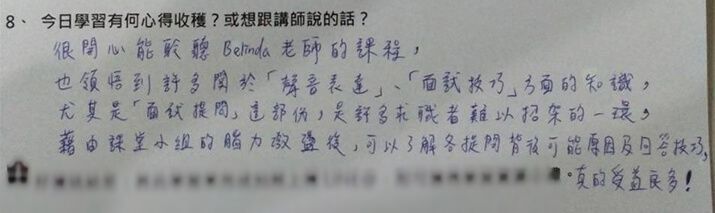 8、 今日學習有何心得收穫？或想跟講師說的話？
很開心能聆聽 Belinda 老師的課程，
也領悟到許多關於「聲音表達」、「面試技巧」方面的知識，
尤其是「面試提問」這部份，是許多求職者難以招架的一環，
藉由課堂小組的腦力激盪後，可以了解各提問背後可能原因及回答技巧，
真的受益良多！